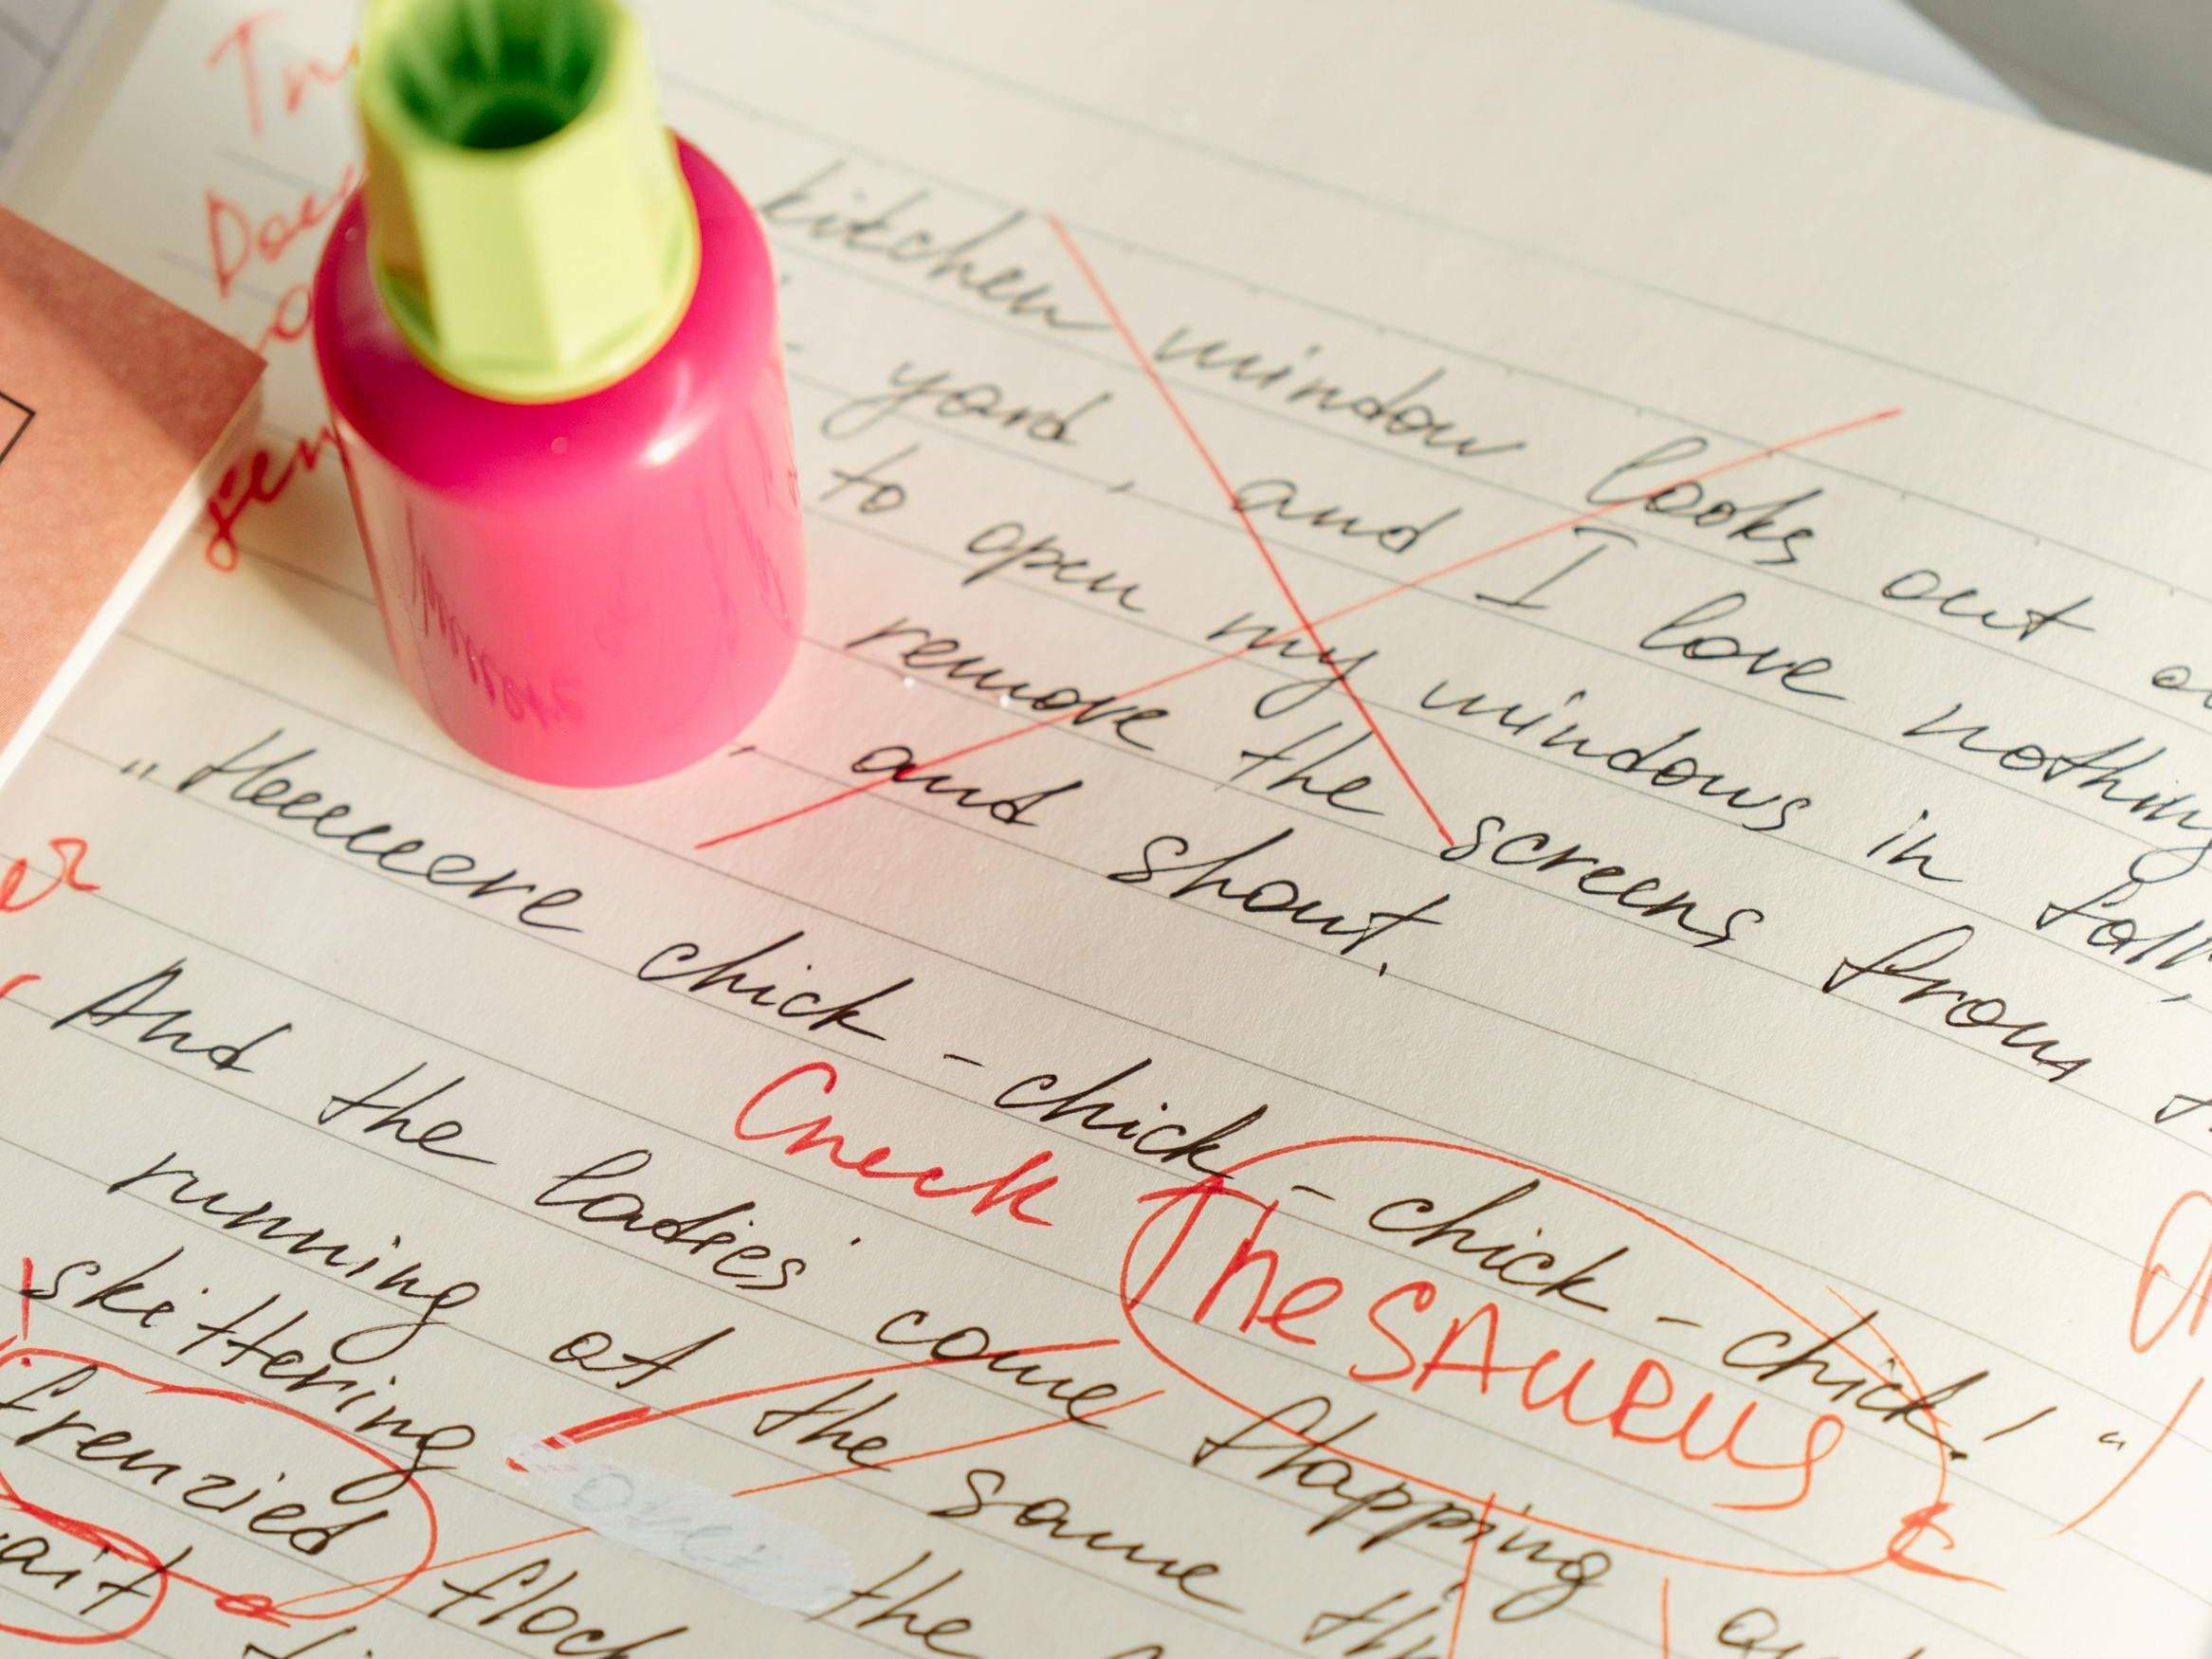 kitchen window looks out
yard, and I love nothing
to open my windows in fall,
remove the screens from
, and shout.
„Heeeeere chick - chick - chick - chick!“
Check TheSAURUS
And the ladies come flapping
running at the same
skittering over the
frenzied flock